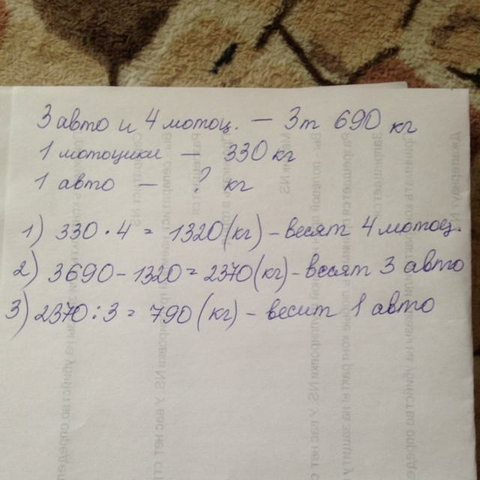 3 авто и 4 мотоц. – 3т 690 кг
1 мотоцикл – 330 кг
1 авто – ? кг
1) 330 · 4 = 1320 (кг) – весят 4 мотоц.
2) 3690 – 1320 = 2370 (кг) – весят 3 авто
3) 2370 : 3 = 790 (кг) – весит 1 авто